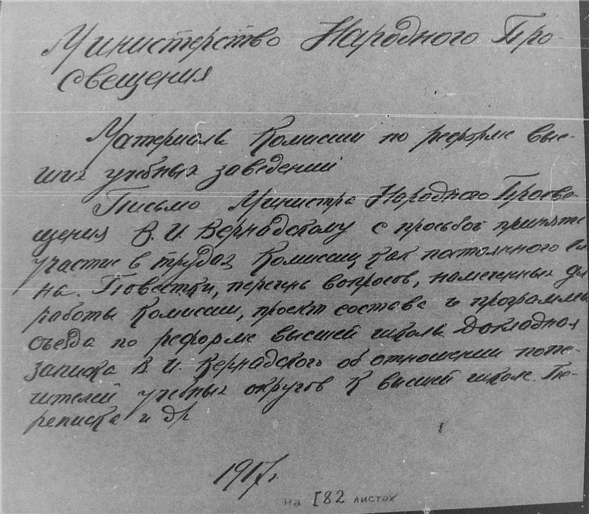 Министерство Народного Про-
свещения
Материалы Комиссии по реформе выс-
ших учебных заведений
Письмо Министра Народного Просве-
щения В. И. Вернадскому с просьбой принять
участие в трудах Комиссии как постоянного чле-
на. Повестки, перечень вопросов, намеченных для
работы Комиссии, проект состава и программы
съезда по реформе высшей школы. Докладная
записка В. И. Вернадского об отношении попе-
чителей учебных округов к высшей школе. Пе-
реписка и др
1917г.
на 182 листах